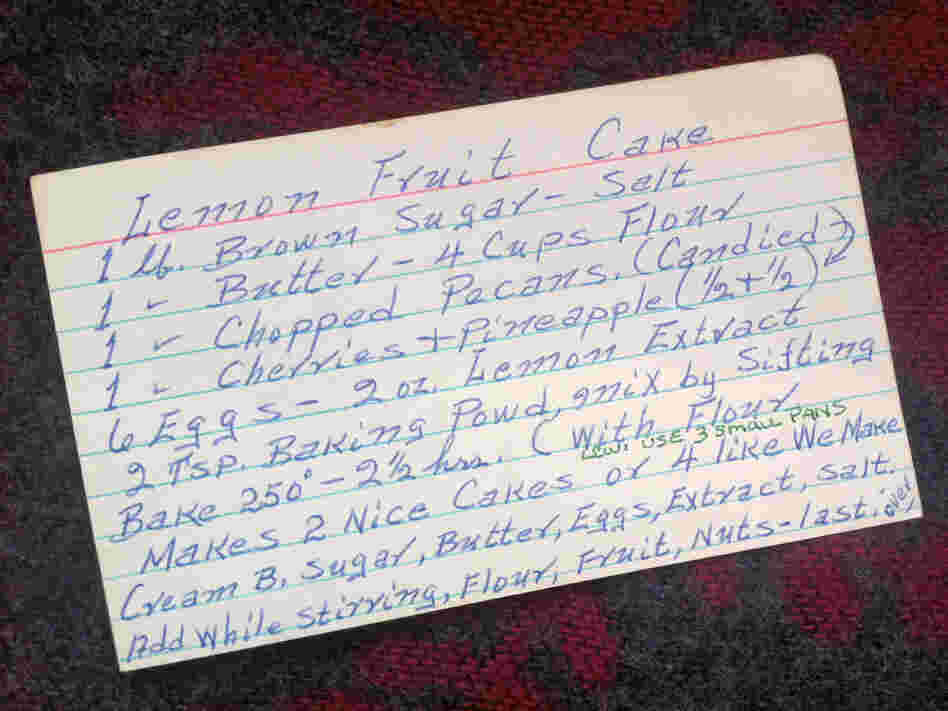 Lemon Fruit Cake
1 lb. Brown Sugar - Salt
1 " Butter - 4 Cups Flour
1 " Chopped Pecans. (Candied)
1 " Cherries + Pineapple (½ + ½)
6 Eggs - 2 oz. Lemon Extract
2 Tsp. Baking Powd, mix by Sifting
Bake 250° - 2½ hrs. (With Flour
USE 3 SMALL PANS
Makes 2 Nice Cakes or 4 like We Make
Cream B. Sugar, Butter, Eggs, Extract, Salt.
Add While stirring, Flour, Fruit, Nuts - last. over